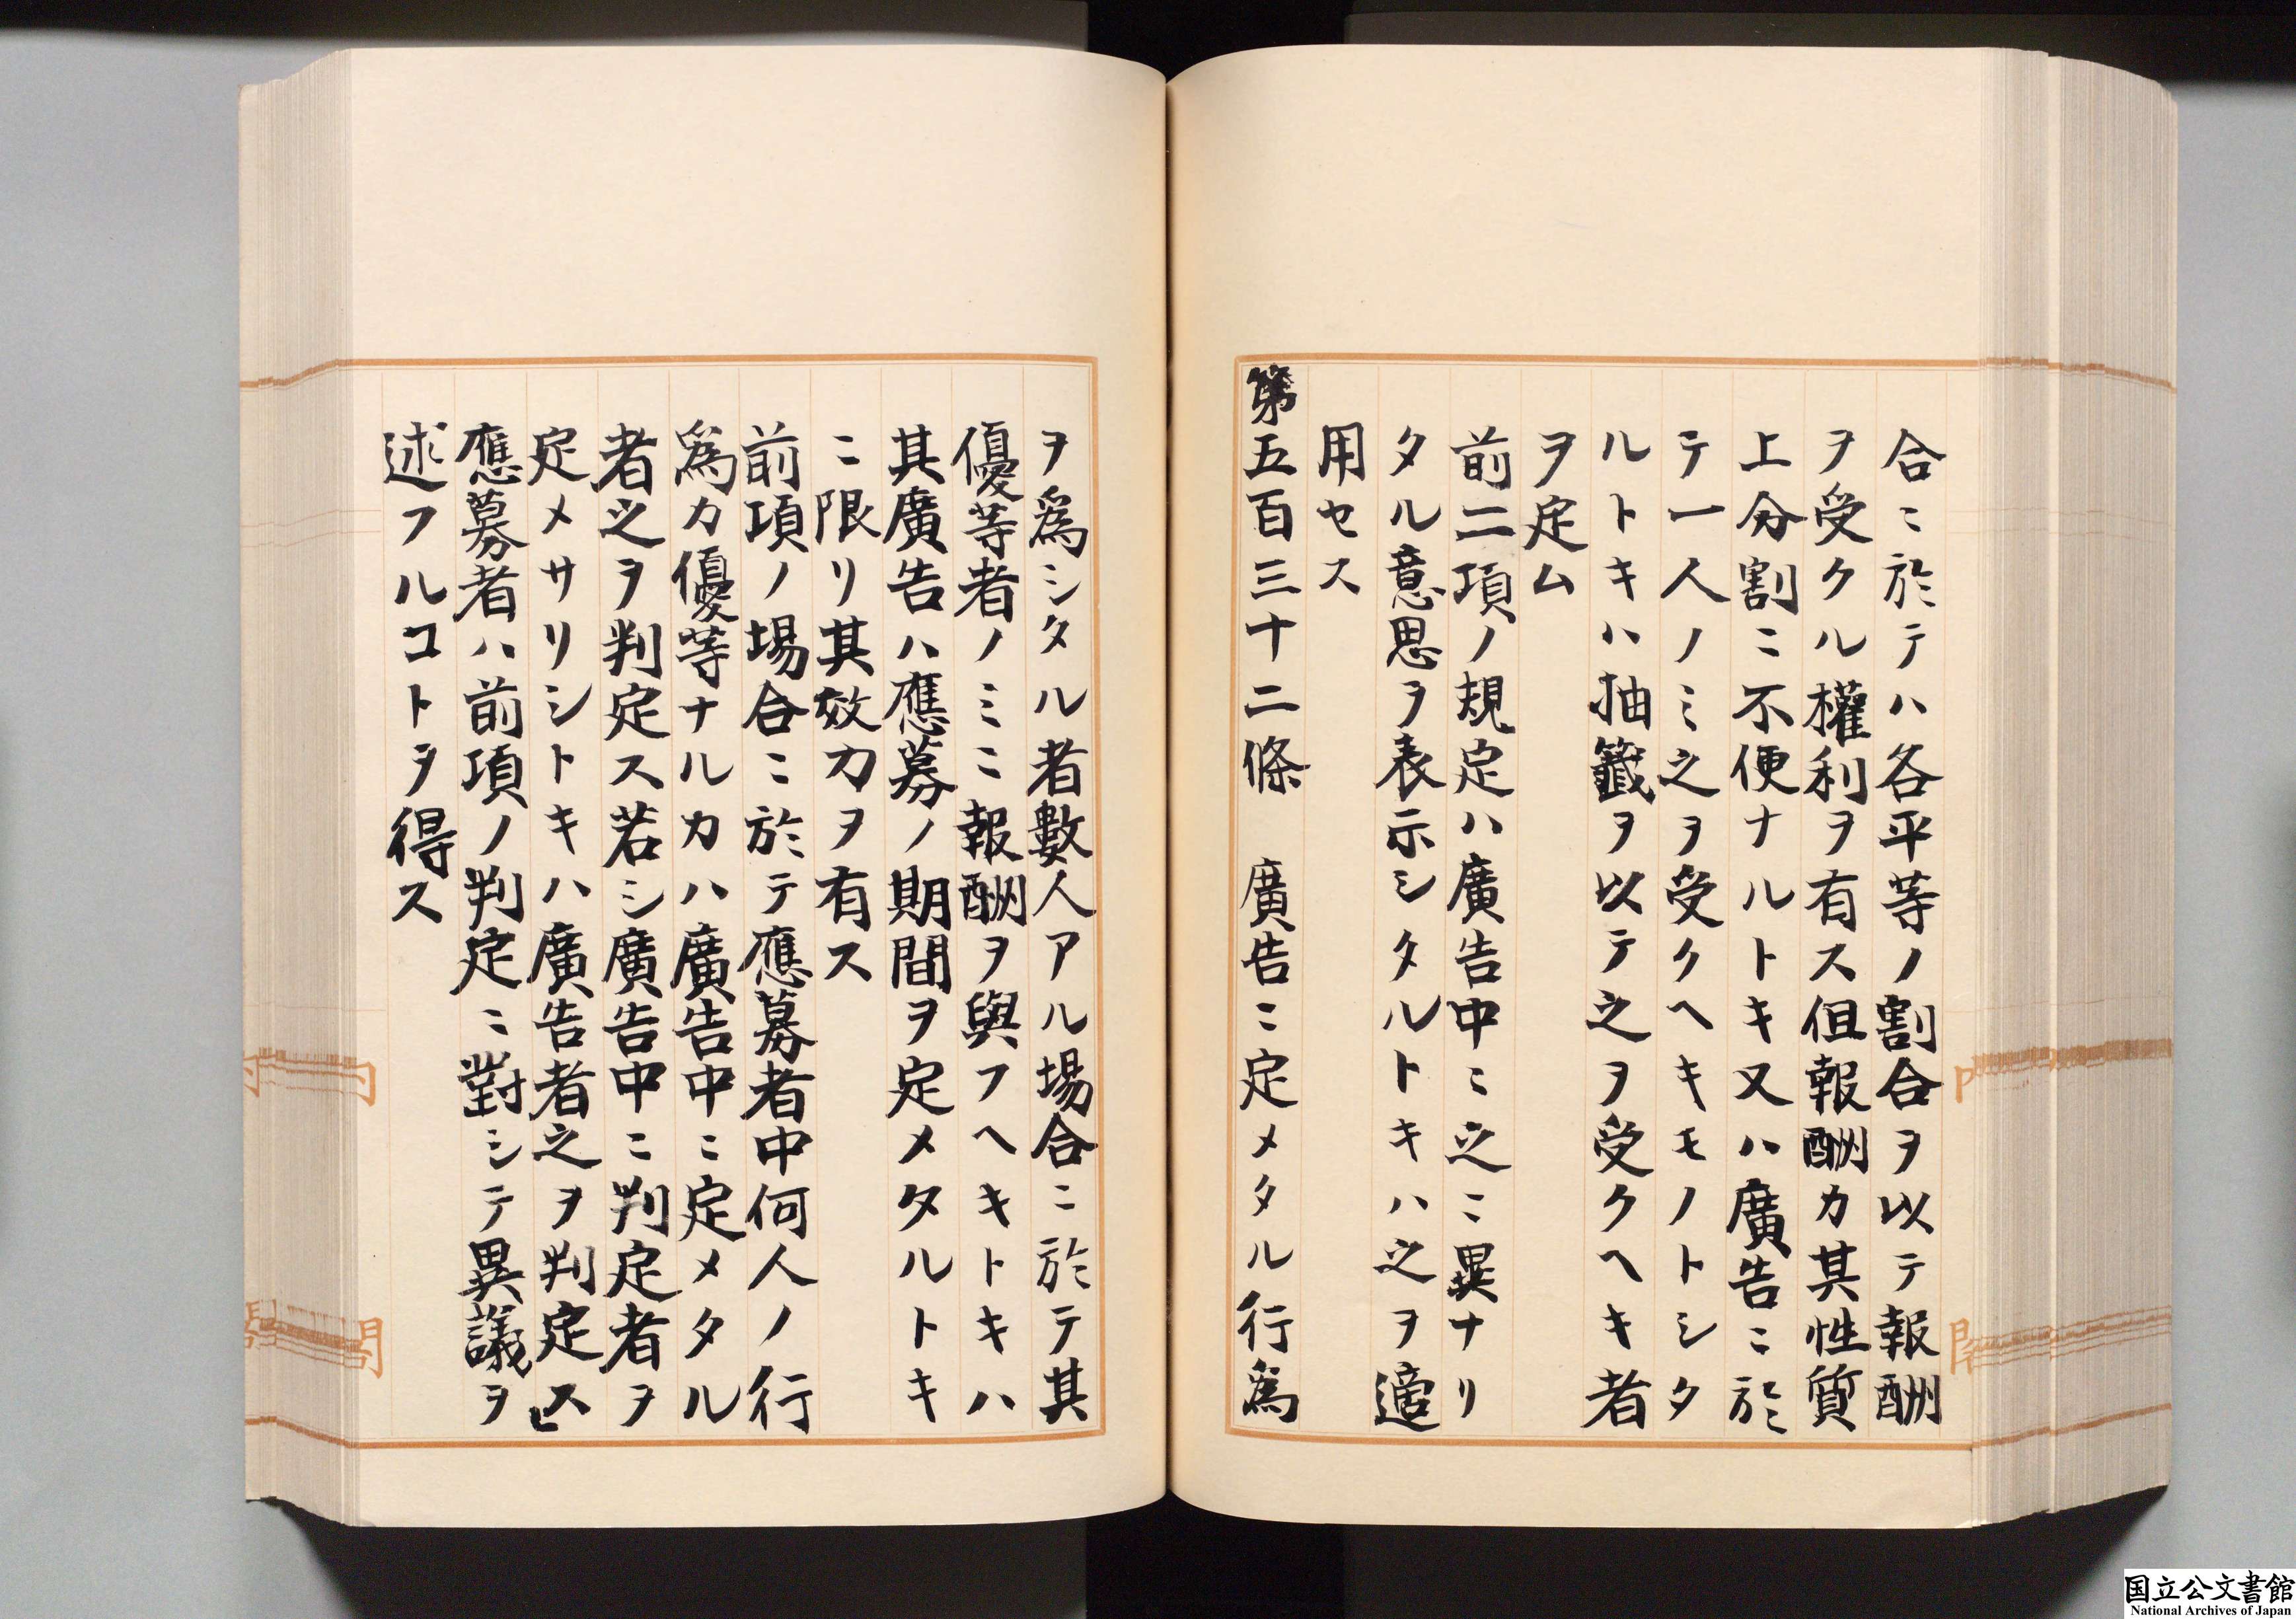 合ニ於テハ各平等ノ割合ヲ以テ報酬
ヲ受クル權利ヲ有ス但報酬カ其性質
上分割ニ不便ナルトキ又ハ廣告ニ於
テ一人ノミ之ヲ受クヘキモノトシタ
ルトキハ抽籤ヲ以テ之ヲ受クヘキ者
ヲ定ム
前二項ノ規定ハ廣告中ニ之ニ異ナリ
タル意思ヲ表示シタルトキハ之ヲ適
用セス
第五百三十二條　廣告ニ定メタル行爲
ヲ爲シタル者數人アル場合ニ於テ其
優等者ノミニ報酬ヲ與フヘキトキハ
其廣告ハ應募ノ期間ヲ定メタルトキ
ニ限リ其效力ヲ有ス
前項ノ場合ニ於テ應募者中何人ノ行
爲カ優等ナルカハ廣告中ニ定メタル
者之ヲ判定ス若シ廣告中ニ判定者ヲ
定メサリシトキハ廣告者之ヲ判定ス
應募者ハ前項ノ判定ニ對シテ異議ヲ
述フルコトヲ得ス
国立公文書館
National Archives of Japan